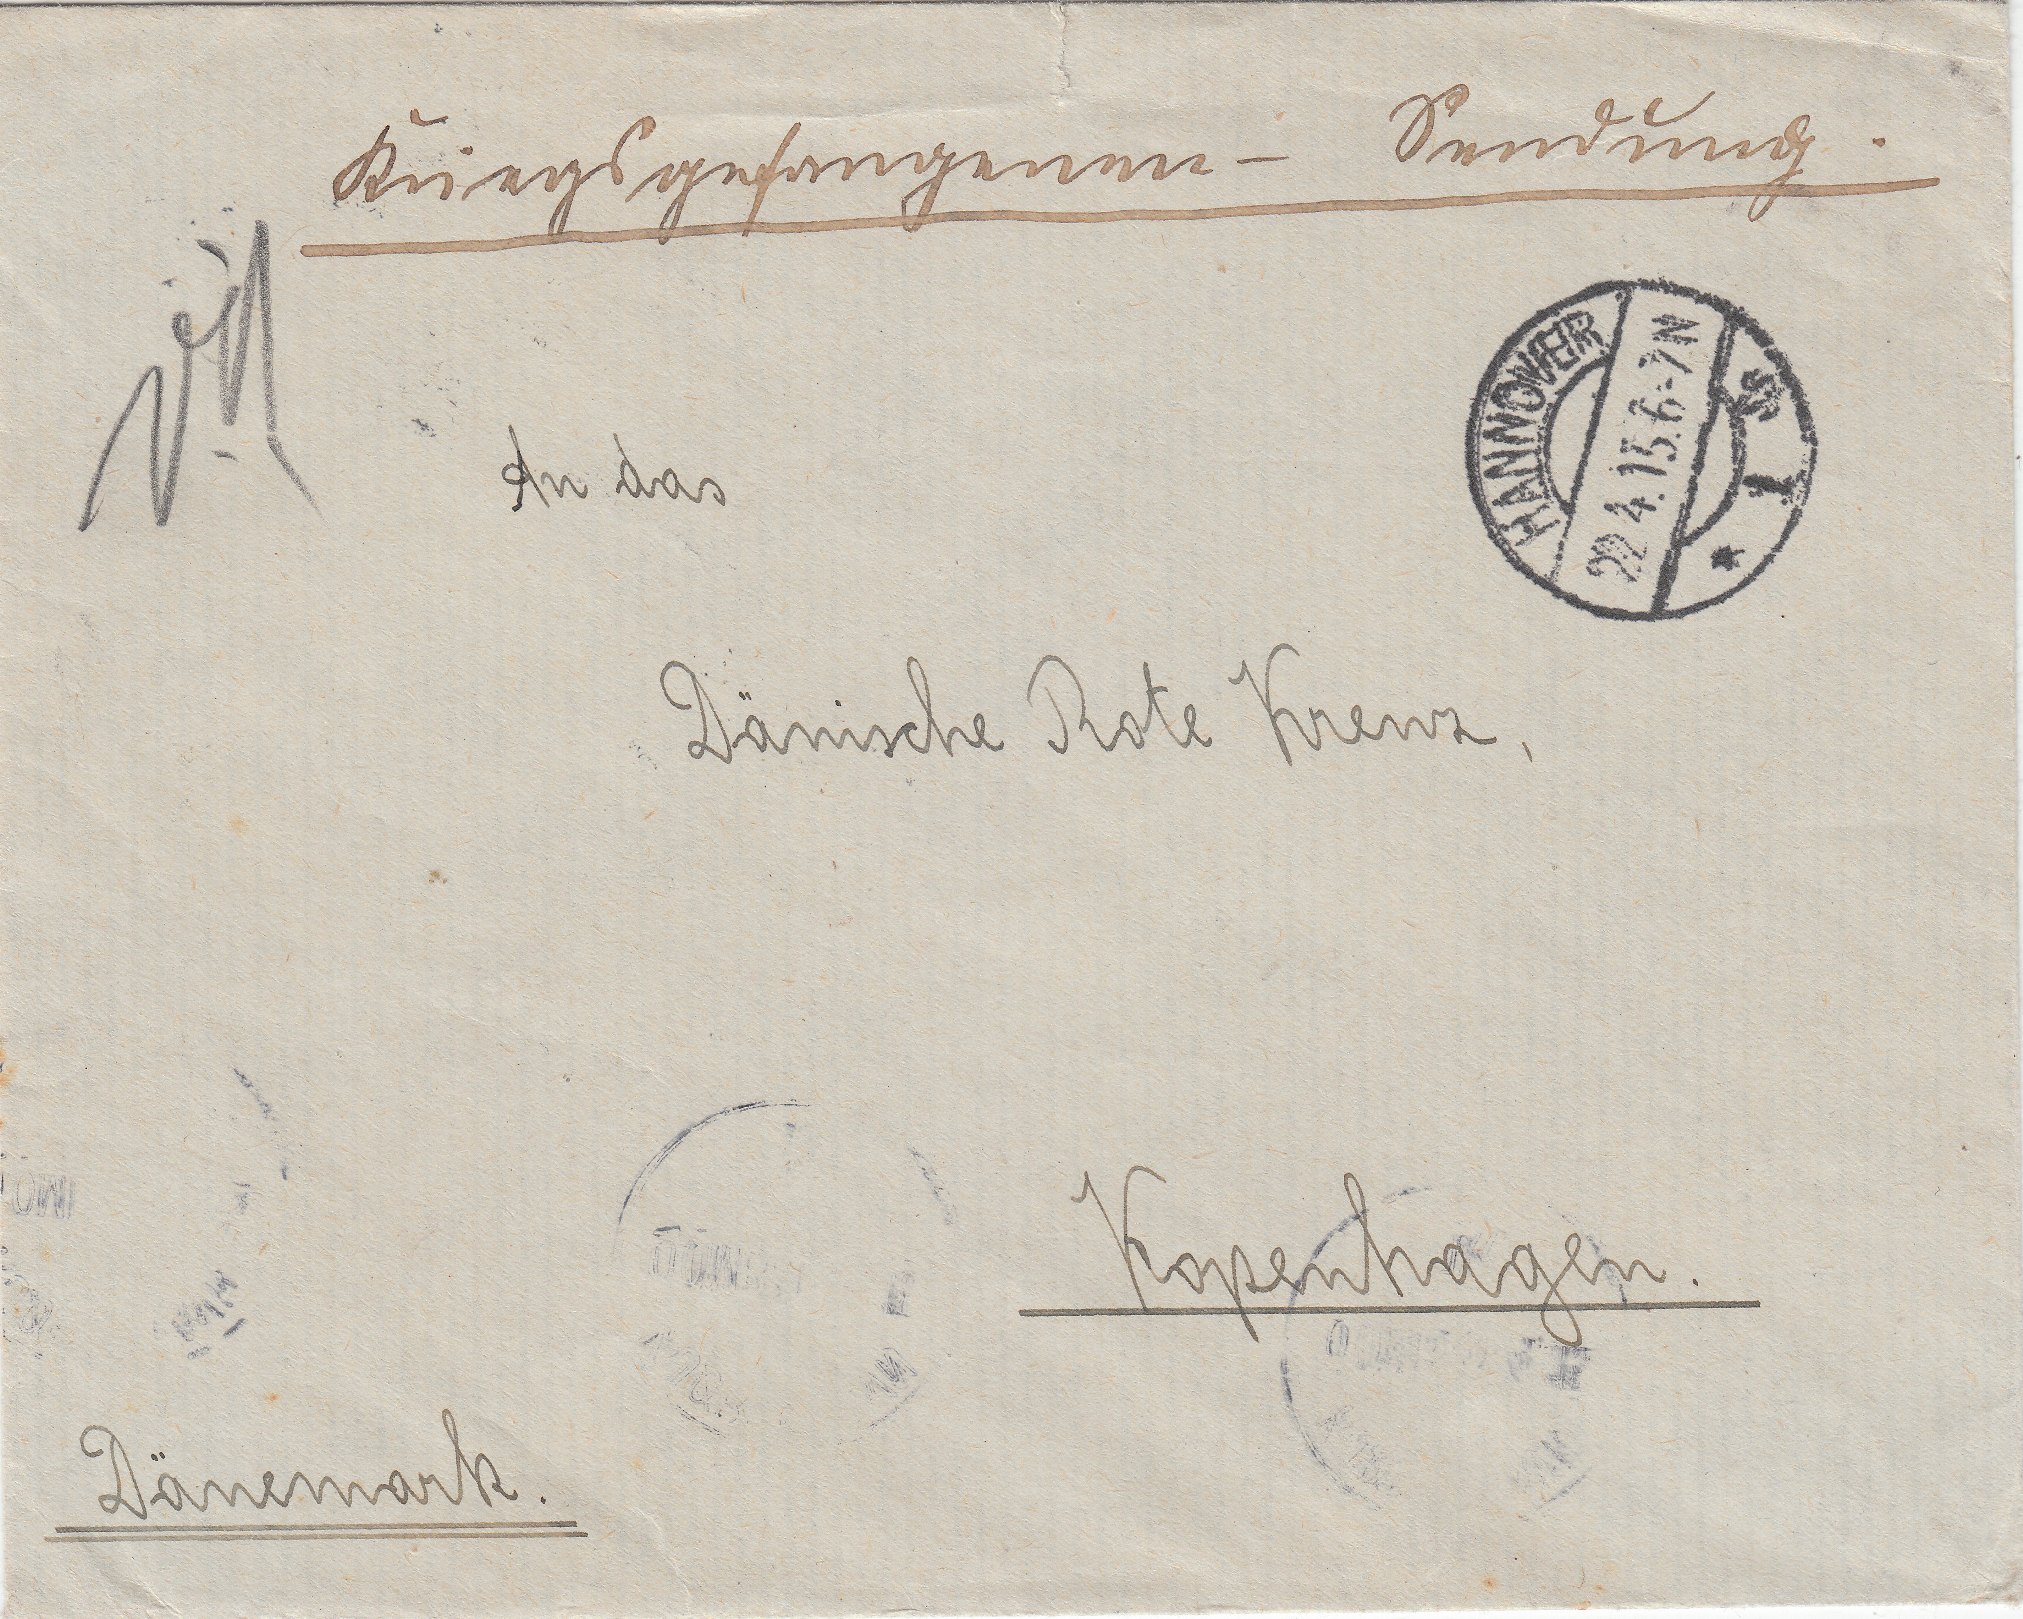 Kriegsgefangenen- Sendung.
HANNOVER
22.4.15.6-7N
* 1 *
An das
Dänische Rote Kreuz,
Kopenhagen.
Dänemark.